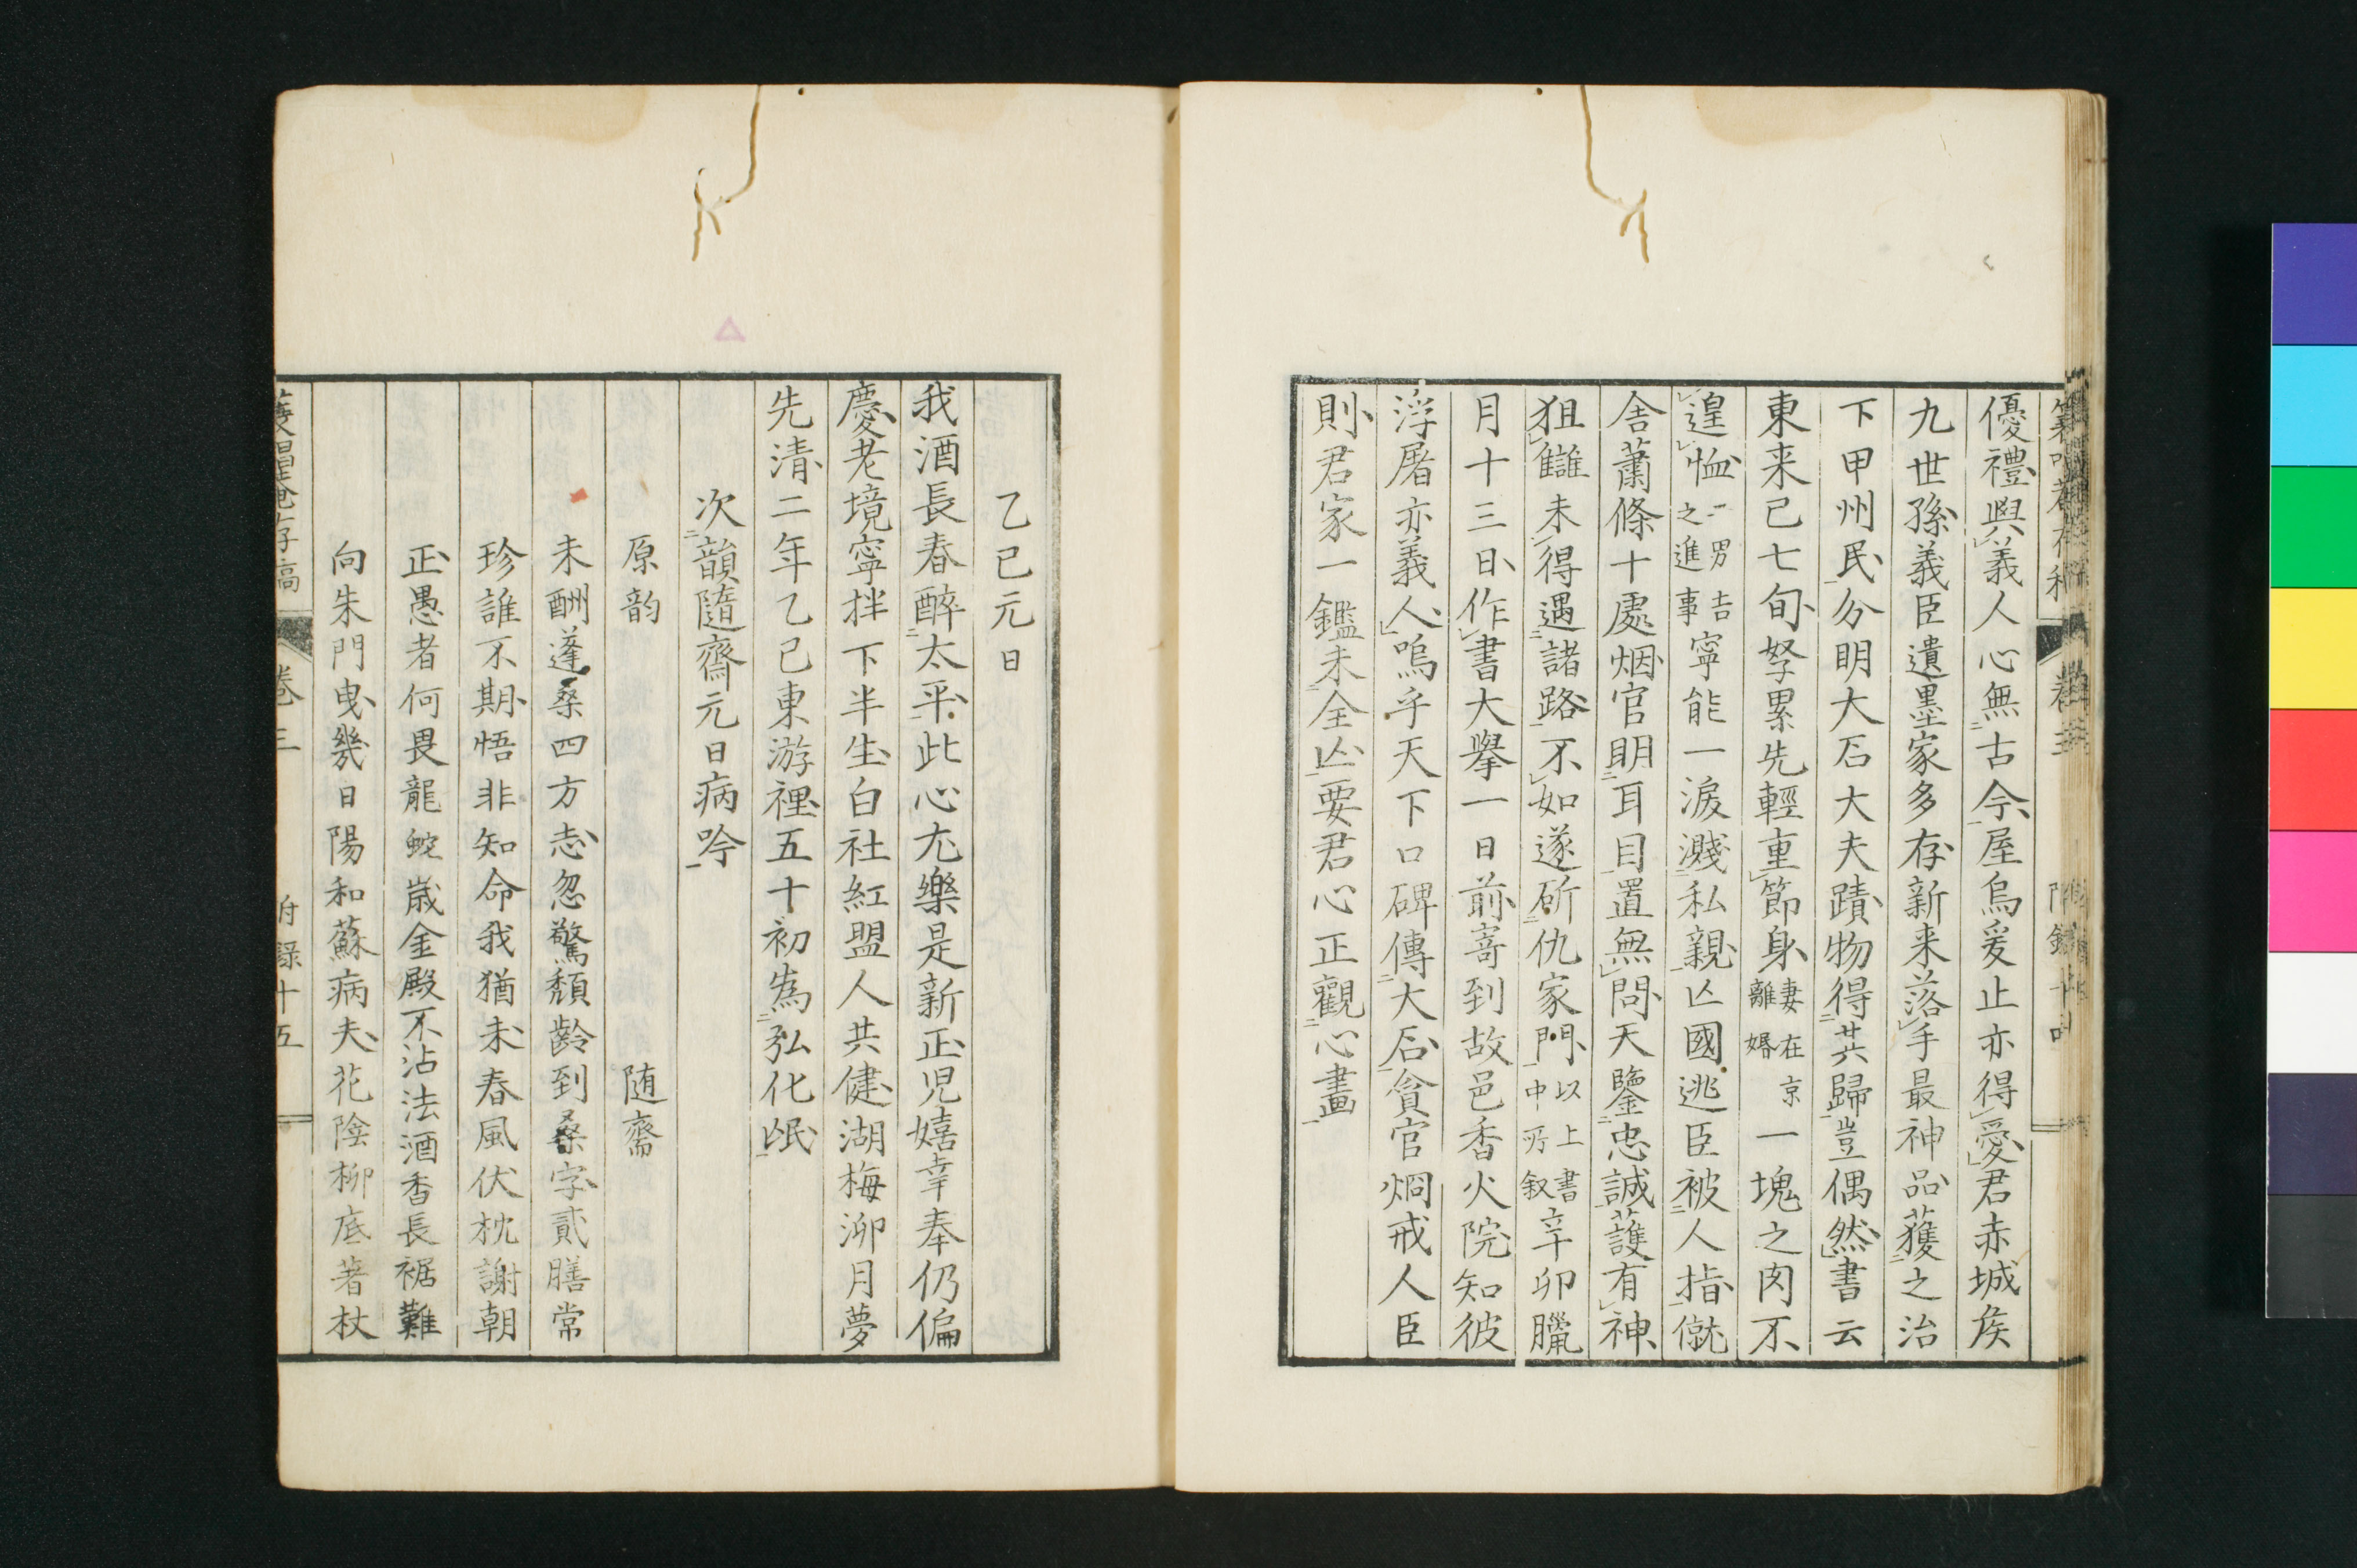 優禮與義人心無古今屋烏爰止亦得愛君赤城矦
九世孫義臣遺墨家多存新来落手最神品蒦之治
下甲州民分明大石大夫蹟物得其歸豈偶然書云
東来已七旬孥累先輕重節身妻在京離婚一塊之肉不
遑恤一男吉之進事寧能一淚濺私親亡國逃臣被人指僦
舎蕭條十處烟官明耳目置無問天鑒忠誠護有神
狙讎未得遇諸路不如遂斫仇家門以上書中所叙辛卯臘
月十三日作書大擧一日前寄到故邑香火院知彼
浮屠亦義人嗚乎天下口碑傳大石貪官烱戒人臣
則君家一鑑未全亾要君心正觀心畫
乙巳元日
我酒長春醉太平此心尢樂是新正児嬉幸奉仍偏
慶老境寧拌下半生白社紅盟人共健湖梅泖月夢
先清二年乙巳東游裡五十初為弘化氓
次韻隨齋元日病吟
原韵 随齋
未酬蓬桑四方志忽驚頽齡到桑字貳膳常
珍誰不期悟非知命我猶未春風伏枕謝朝
正愚者何畏龍蛇歳金殿不沾法酒香長裾難
向朱門曳幾日陽和蘇病夫花陰柳底著杖
存稿 卷三 附録十五